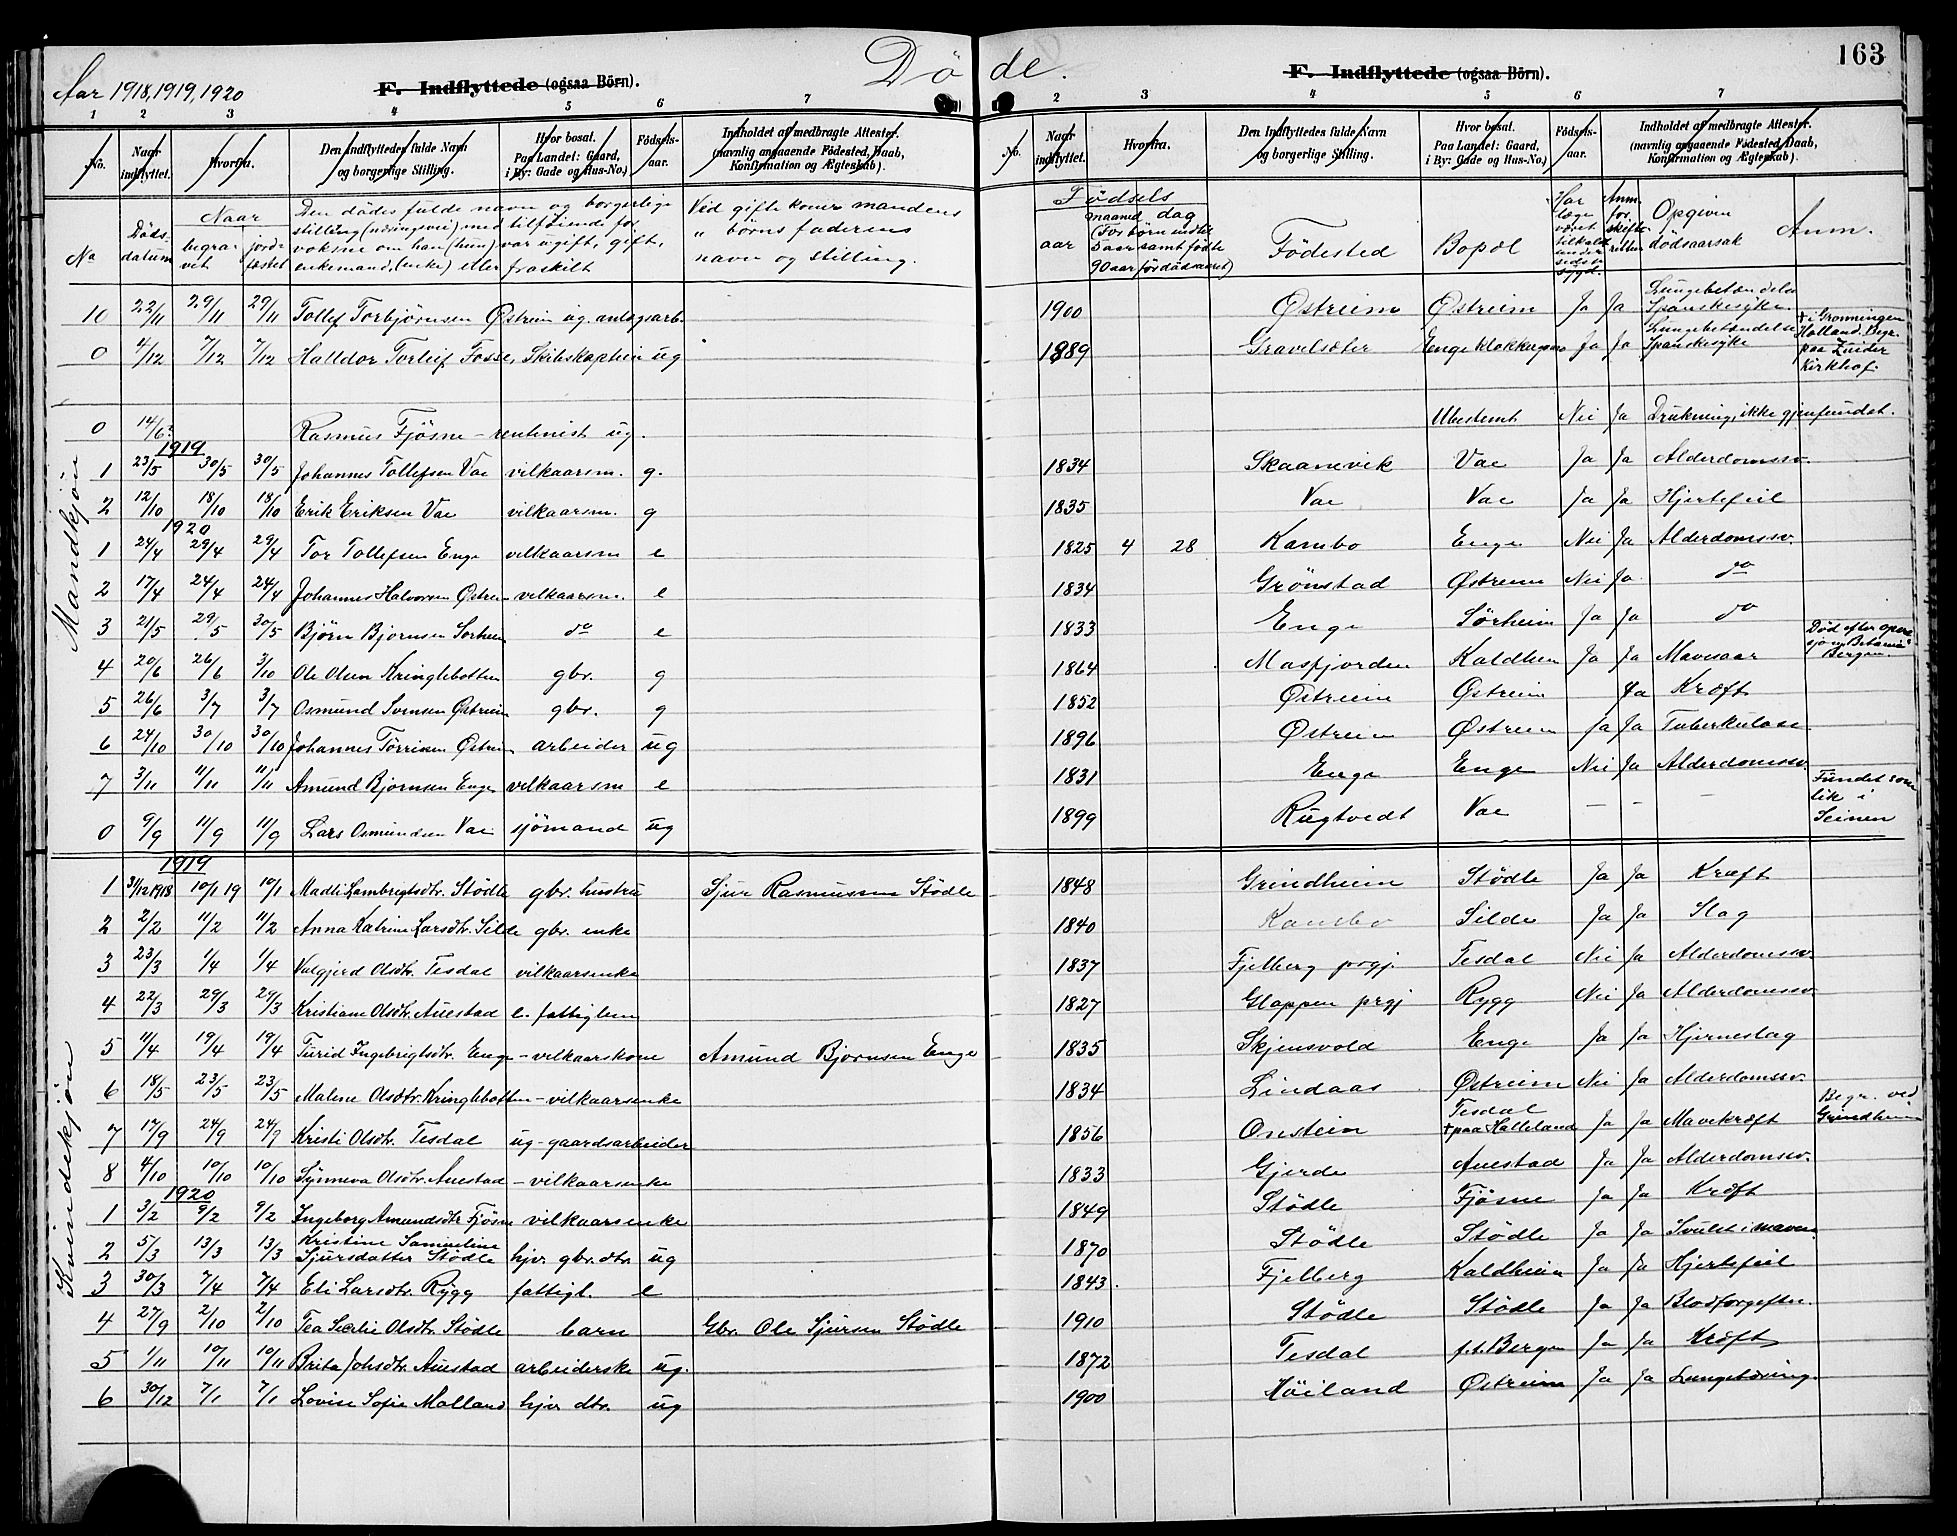 163
Aar 1918, 1919, 1920
Döde.
F. Indflyttede (ogsaa Börn).
F. Indflyttede (ogsaa Börn).
1 2 3 4 5 6 7
2 3 4 5 6 7
No. Naar indflyttet. Hvorfra. Den Indflyttedes fulde Navn og borgerlige Stilling. Hvor bosat. Paa Landet: Gaard, i By: Gade og Hus-No.) Födsels-aar. Indholdet af medbragte Attester. (navnlig angaaende Födested, Daab, Konfirmation og Ægteskab).
No. Naar indflyttet. Hvorfra. Den Indflyttedes fulde Navn og borgerlige Stilling. Hvor bosat. Paa Landet: Gaard, i By: Gade og Hus-No.) Födsels-aar. Indholdet af medbragte Attester. (navnlig angaaende Födested, Daab, Konfirmation og Ægteskab).
No Döds-datum Naar begravet jordfæstet Den dödes fulde navn og borgerlige stilling (næringsvei) med tilföiende for voksne om han (hun) var ugift, gift, enkemand (enke) eller fraskilt Ved gifte koner mandens " börns faderens navn og stilling.
Födsels aar maaned dag (For börn indtil 5 aar samt födte 90 aar för dödsaaret) Födested Bopæl Har læge været tilkaldt under sidste sygd. Anm. for skifteretten Opgiven dödsaarsak Anm.
Mandkjön
10 22/11 29/11 29/11 Tollef Torbjörnsen Östreim ug. anlegsarb. 1900 Östreim Östreim Ja Ja Lungebetændelse Spanskesyke
0 4/12 7/12 7/12 Halldor Torleif Fosse, Skibskaptein ug 1889 Gravelsæter Enge Ja Ja Lungebetændelse Spanskesyke + i Gronningen Holland. Begr. paa Zuider Kirkhof.
0 14/6? Rasmus Fjösne - rentenist ug. Ubestemt Nei Ja Drukning, ikke gjenfundet.
1919
1 23/5 30/5 30/5 Johannes Tollefsen Vae vilkaarsm. g. 1834 Skaanevik Vae Ja Ja Alderdomssv.
2 12/10 18/10 18/10 Erik Eriksen Vae vilkaarsm. g 1835 Vae Vae Ja Ja Hjertefeil
1920
1 24/4 29/4 29/4 Tor Tollefsen Enge vilkaarsm e 1825 4 28 Kambo Enge Nei Ja Alderdomssv.
2 17/4 24/4 24/4 Johannes Halvorsen Östreim vilkaarsm. e 1834 Grönstad Östreim Nei Ja do
3 21/5 29/5 30/5 Björn Bjornsen Sorheim do e 1833 Enge Sörheim Ja Ja do
4 20/6 26/6 3/10 Ole Olsen Kringlebotten gbr. g 1864 Masfjorden Kaldheim Ja Ja Mavesaar Död efter operasjon Betania Bergen.
5 26/6 3/7 3/7 Osmund Svensen Östreim gbr. g 1852 Östreim Östreim Ja Kræft
6 24/10 30/10 30/10 Johannes Törrisen Östreim arbeider ug 1896 Östreim Östreim Ja Ja Tuberkulose
7 3/11 11/11 11/11 Amund Bjornsen Enge vilkaarsm e 1831 Enge Enge Nei Ja Alderdomssv.
0 9/9 11/9 11/9 Lars Osmundsen Vae sjömand ug 1899 Rugtvedt Vae - - - Fundet som lik i Seinen
Kvindekjön
1919
1 31/12 1918 10/1 19 10/1 Madli Lambrigtsdtr. Stödle gbr. hustru Sjur Rasmussen Stödle 1848 Grindheim Stödle Ja Ja Kræft
2 2/2 11/2 11/2 Anna Katrine Larsdtr. Silde gbr. enke 1840 Kambo Silde Ja Ja Slag
3 23/3 1/4 1/4 Valgjerd Olsdtr. Tesdal vilkaarsenke 1837 Fjelberg prgj. Tesdal Nei Ja Alderdomssv.
4 22/3 29/3 29/3 Kristiane Olsdtr. Auestad e. fattiglem 1827 Gloppen prgj Rygg Nei Ja Alderdomssv.
5 11/4 19/4 19/4 Turid Ingebrigtsdtr. Enge - vilkaarskone Amund Bjornsen Enge 1835 Skjensvold Enge Ja Ja Hjerneslag
6 18/5 23/5 23/5 Malene Olsdtr. Kringlebotten - vilkaarsenke 1834 Lindaas Östreim Nei Ja Alderdomssv.
7 17/9 24/9 24/9 Kristi Olsdtr. Tesdal ug - gaardsarbeider 1856 Onstein Tesdal + paa Halleland Ja Ja Mavekræft Begr. ved Grindheim
8 4/10 10/10 10/10 Synneva Olsdtr. Auestad - vilkaarsenke 1833 Gjerde Auestad Ja Ja Alderdomssv.
1920
1 3/2 9/2 9/2 Ingeborg Amundsdtr Fjösne vilkaarsenke 1849 Stödle Fjösne Ja Ja Kræft
2 5/3 13/3 13/3 Kristine Samueline Sjursdatter Stödle hjv. gbr. dtr. ug 1870 Stödle Stödle Ja Ja Svulst i maven
3 30/3 7/4 7/4 Eli Larsdtr. Rygg fattigl. e 1843. Fjelberg Kaldheim Ja Ja Hjertefeil
4 27/9 2/10 2/10 Tea Secilie Olsdtr. Stödle barn Gbr. Ole Sjursen Stödle 1910 Stödle Stödle Ja Ja Blodforgiften.
5 1/11 10/11 10/11 Brita Johsdtr. Auestad arbeiderske ug. 1872 Tesdal f.t. Bergen Ja Ja Kræft
6 30/12 7/1 7/1 Lovise Sofie Malland hjv dtr. ug 1900 Höiland Östreim Ja Ja Lungetæring